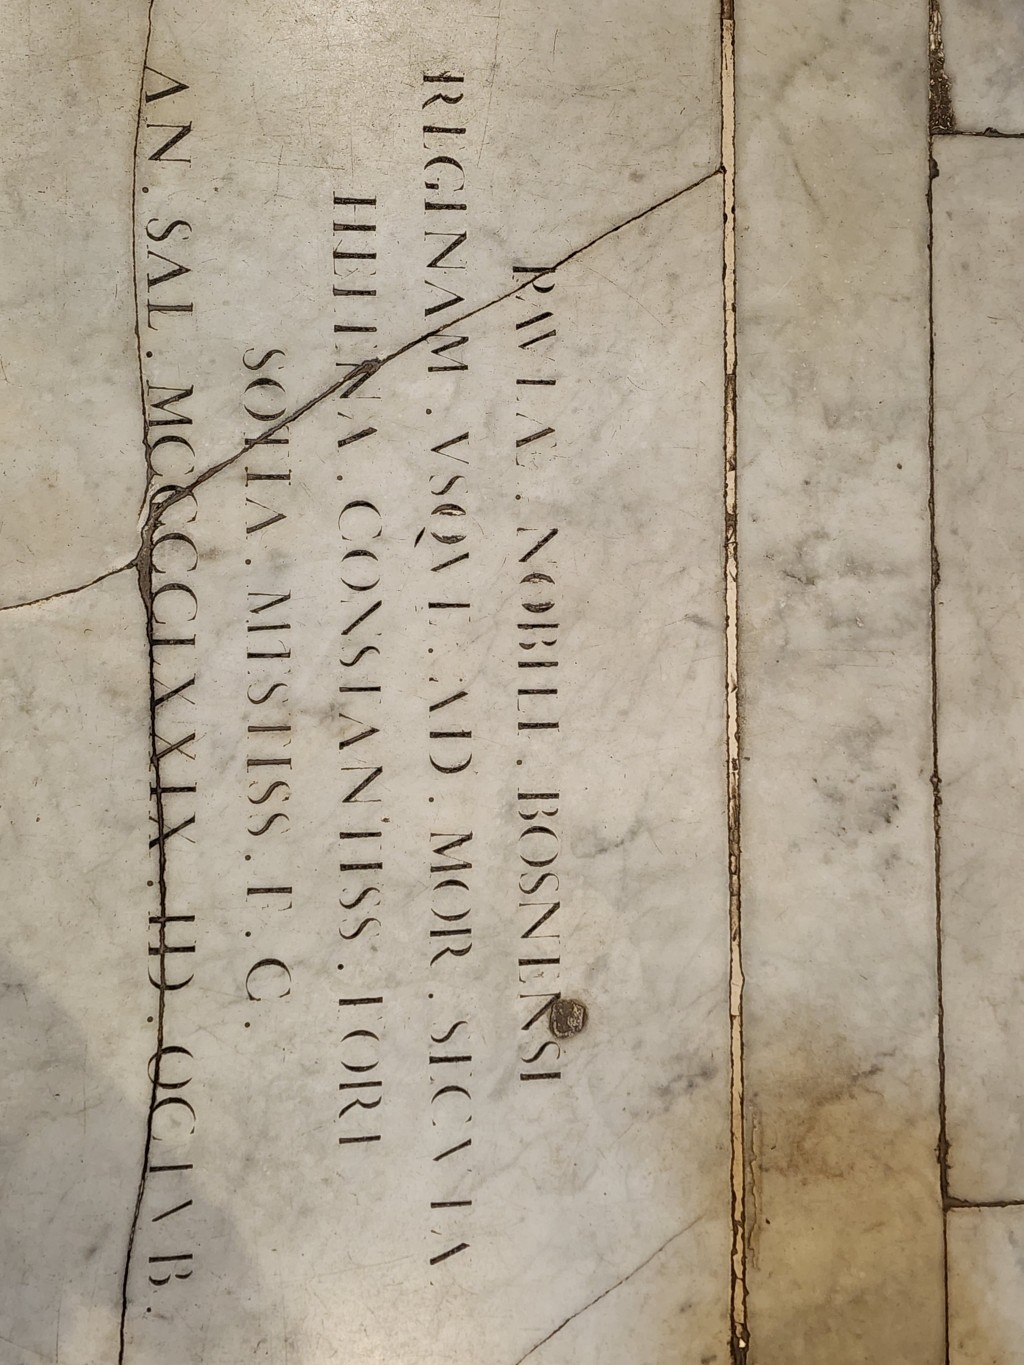 PAVLAE . NOBILI . BOSNENSI
REGINAM . VSQVE . AD . MOR . SECVTA
HELENA . CONSTANTISS . FORI
SOTIA . MESTISS . F . C .
AN . SAL . MCCCCLXXIX . IID . OCTAB .